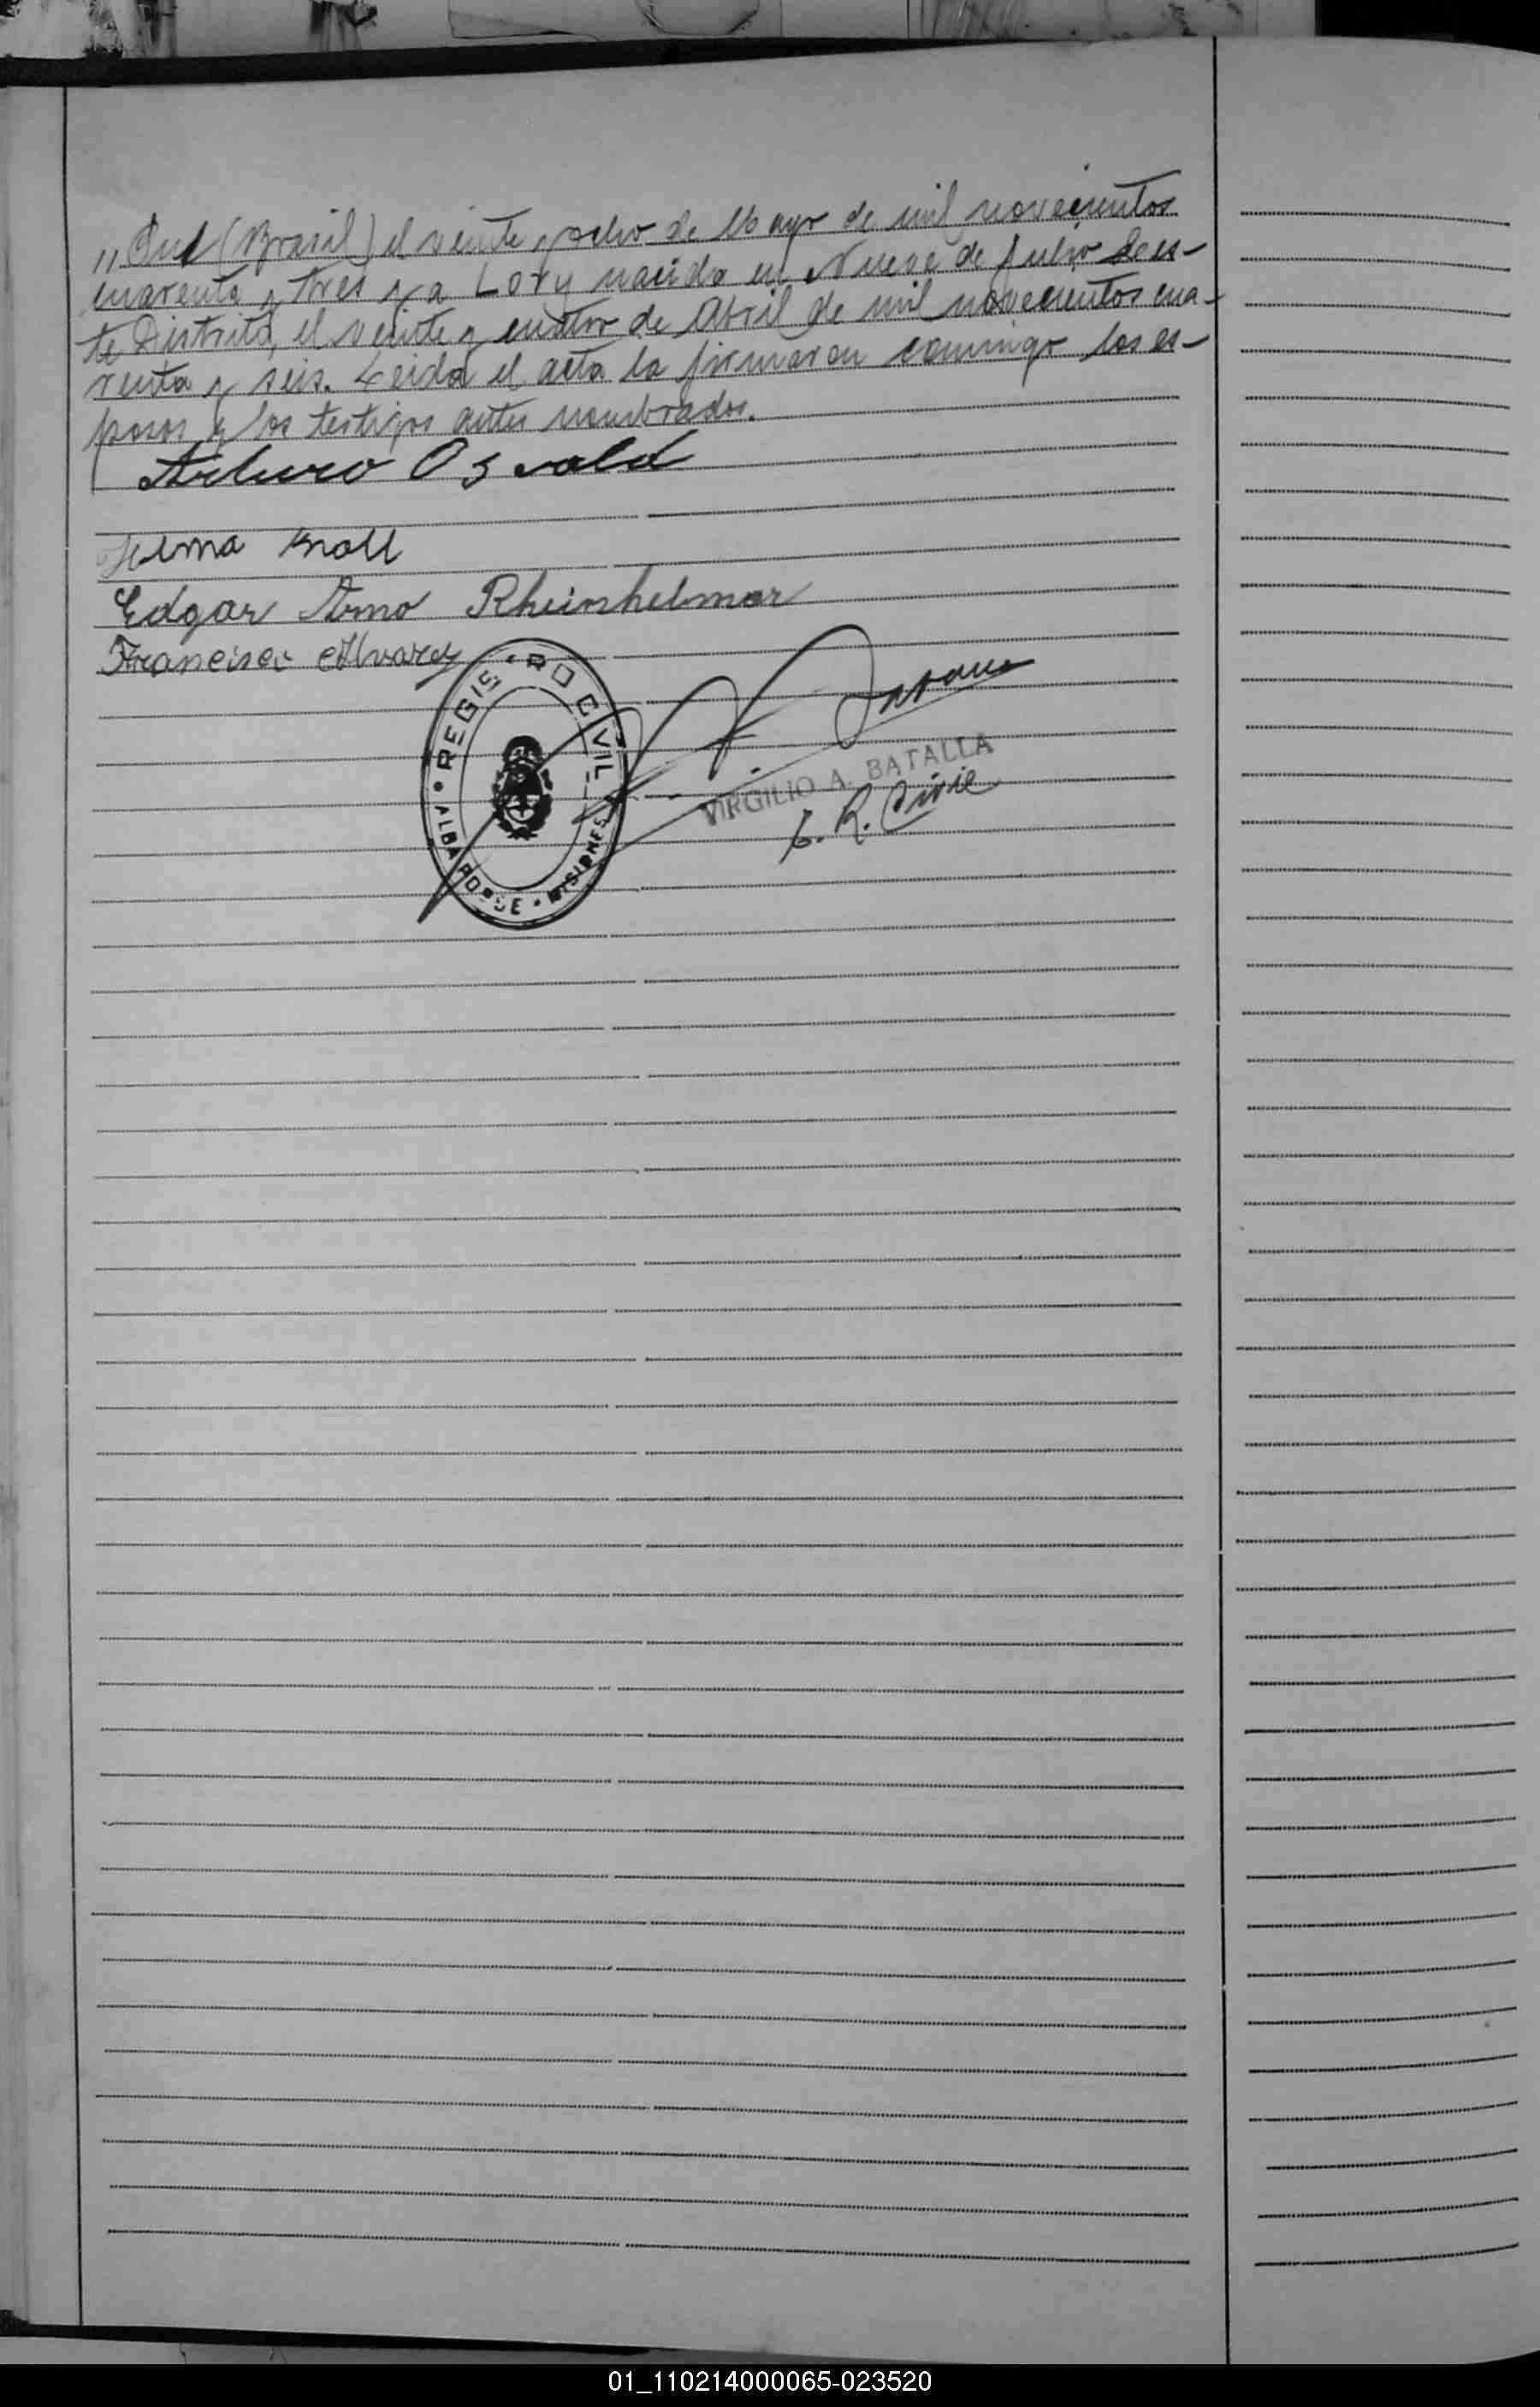 „Sud (Brasil) el veinte y ocho de Mayo de mil novecientos
cuarenta y tres y a Lory nacida en Nueve de Julio de es-
te Distrito, el veinte y cuatro de Abril de mil novecientos cua-
renta y seis. Leida el acta la firmaron conmigo los es-
posos y los testigos antes nombrados.
Arturo Osvald
Selma
Edgar Arno Rheinhelmer
Francisco Alvarez
REGISTRO CIVIL
MISIONES
VIRGILIO A. BATALLA
E. R. Civil
01_110214000065-023520